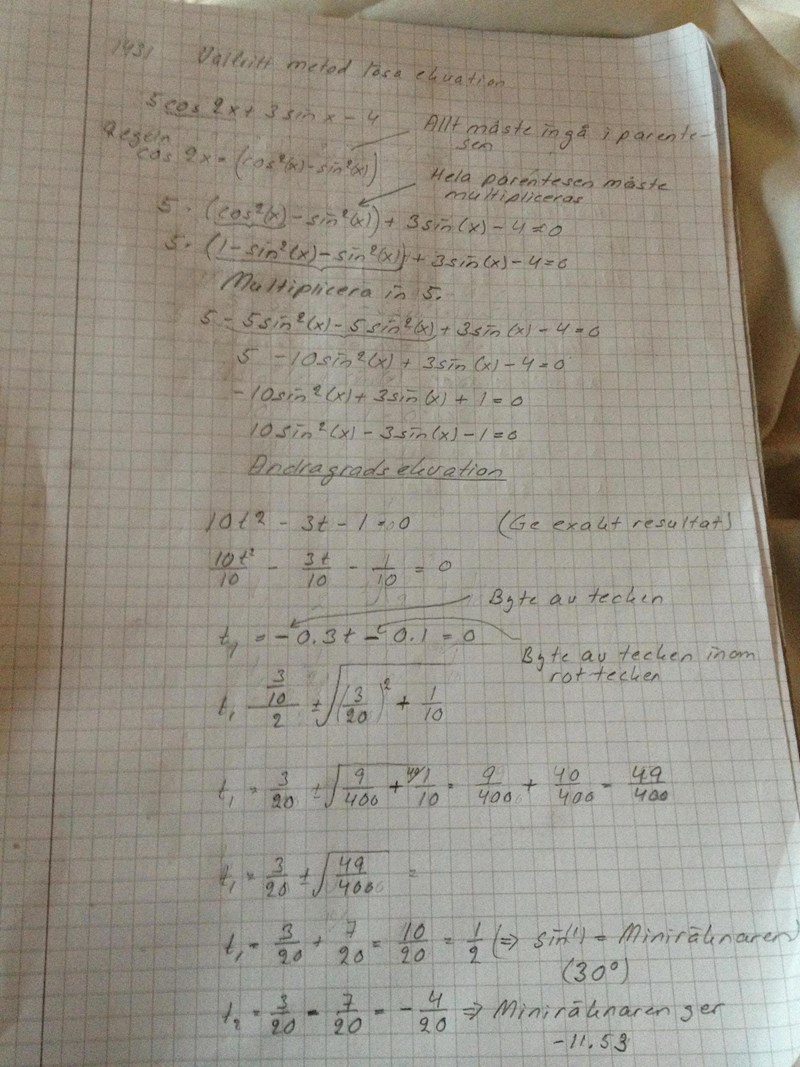 1431 Valfritt metod lösa ekvation
5 cos 2x + 3 sin x - 4
Allt måste ingå i parentesen
Regeln
cos 2x = (cos²(x) - sin²(x))
Hela parentesen måste multipliceras
5 · (cos²(x) - sin²(x)) + 3sin(x) - 4 = 0
5 · (1 - sin²(x) - sin²(x)) + 3sin(x) - 4 = 0
Multiplicera in 5.
5 - 5sin²(x) - 5sin²(x) + 3sin(x) - 4 = 0
5 - 10sin²(x) + 3sin(x) - 4 = 0
-10sin²(x) + 3sin(x) + 1 = 0
10sin²(x) - 3sin(x) - 1 = 0
Andragradsekvation
10t² - 3t - 1 = 0 (Ge exakt resultat)
10t²/10 - 3t/10 - 1/10 = 0
Byte av tecken
t₁ = - 0.3t - 0.1 = 0
Byte av tecken inom rottecken
t₁ (3/10)/2 ± √((3/20)² + 1/10)
t₁ = 3/20 ± √(9/400 + 1/10) = 9/400 + 40/400 = 49/400
t₁ = 3/20 ± √(49/400) =
t₁ = 3/20 + 7/20 = 10/20 = 1/2 (=> sin(⁻¹) = Miniräknaren)
(30°)
t₂ = 3/20 - 7/20 = -4/20 => Miniräknaren ger
-11.53